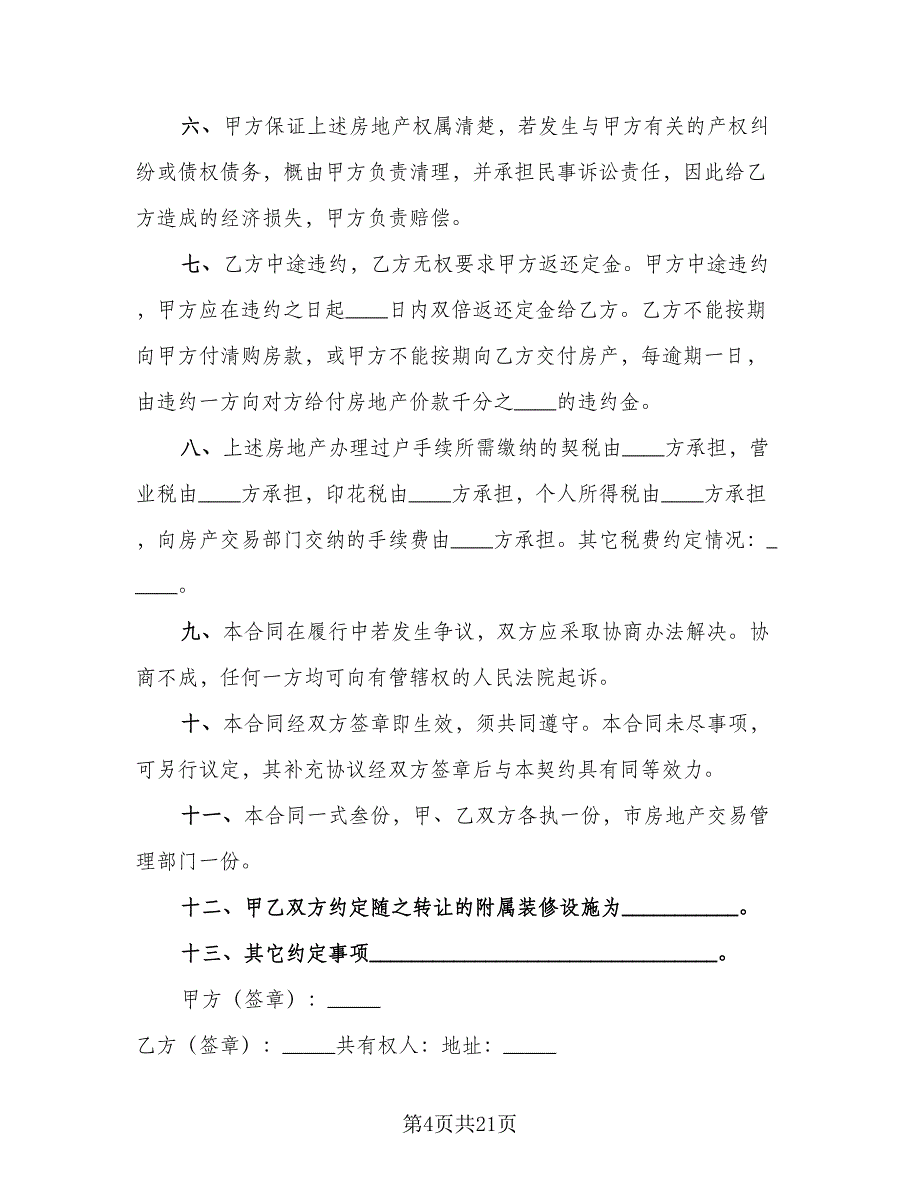 六、甲方保证上述房地产权属清楚，若发生与甲方有关的产权纠
纷或债权债务，概由甲方负责清理，并承担民事诉讼责任，因此给乙
方造成的经济损失，甲方负责赔偿。
七、乙方中途违约，乙方无权要求甲方返还定金。甲方中途违约
，甲方应在违约之日起____日内双倍返还定金给乙方。乙方不能按期
向甲方付清购房款，或甲方不能按期向乙方交付房产，每逾期一日，
由违约一方向对方给付房地产价款千分之____的违约金。
八、上述房地产办理过户手续所需缴纳的契税由____方承担，营
业税由____方承担，印花税由____方承担，个人所得税由____方承担
，向房产交易部门交纳的手续费由____方承担。其它税费约定情况：_
____。
九、本合同在履行中若发生争议，双方应采取协商办法解决。协
商不成，任何一方均可向有管辖权的人民法院起诉。
十、本合同经双方签章即生效，须共同遵守。本合同未尽事项，
可另行议定，其补充协议经双方签章后与本契约具有同等效力。
十一、本合同一式叁份，甲、乙双方各执一份，市房地产交易管
理部门一份。
十二、甲乙双方约定随之转让的附属装修设施为___________。
十三、其它约定事项_________________________________。
甲方（签章）：_____
乙方（签章）：_____共有权人：地址：_____
第4页共21页